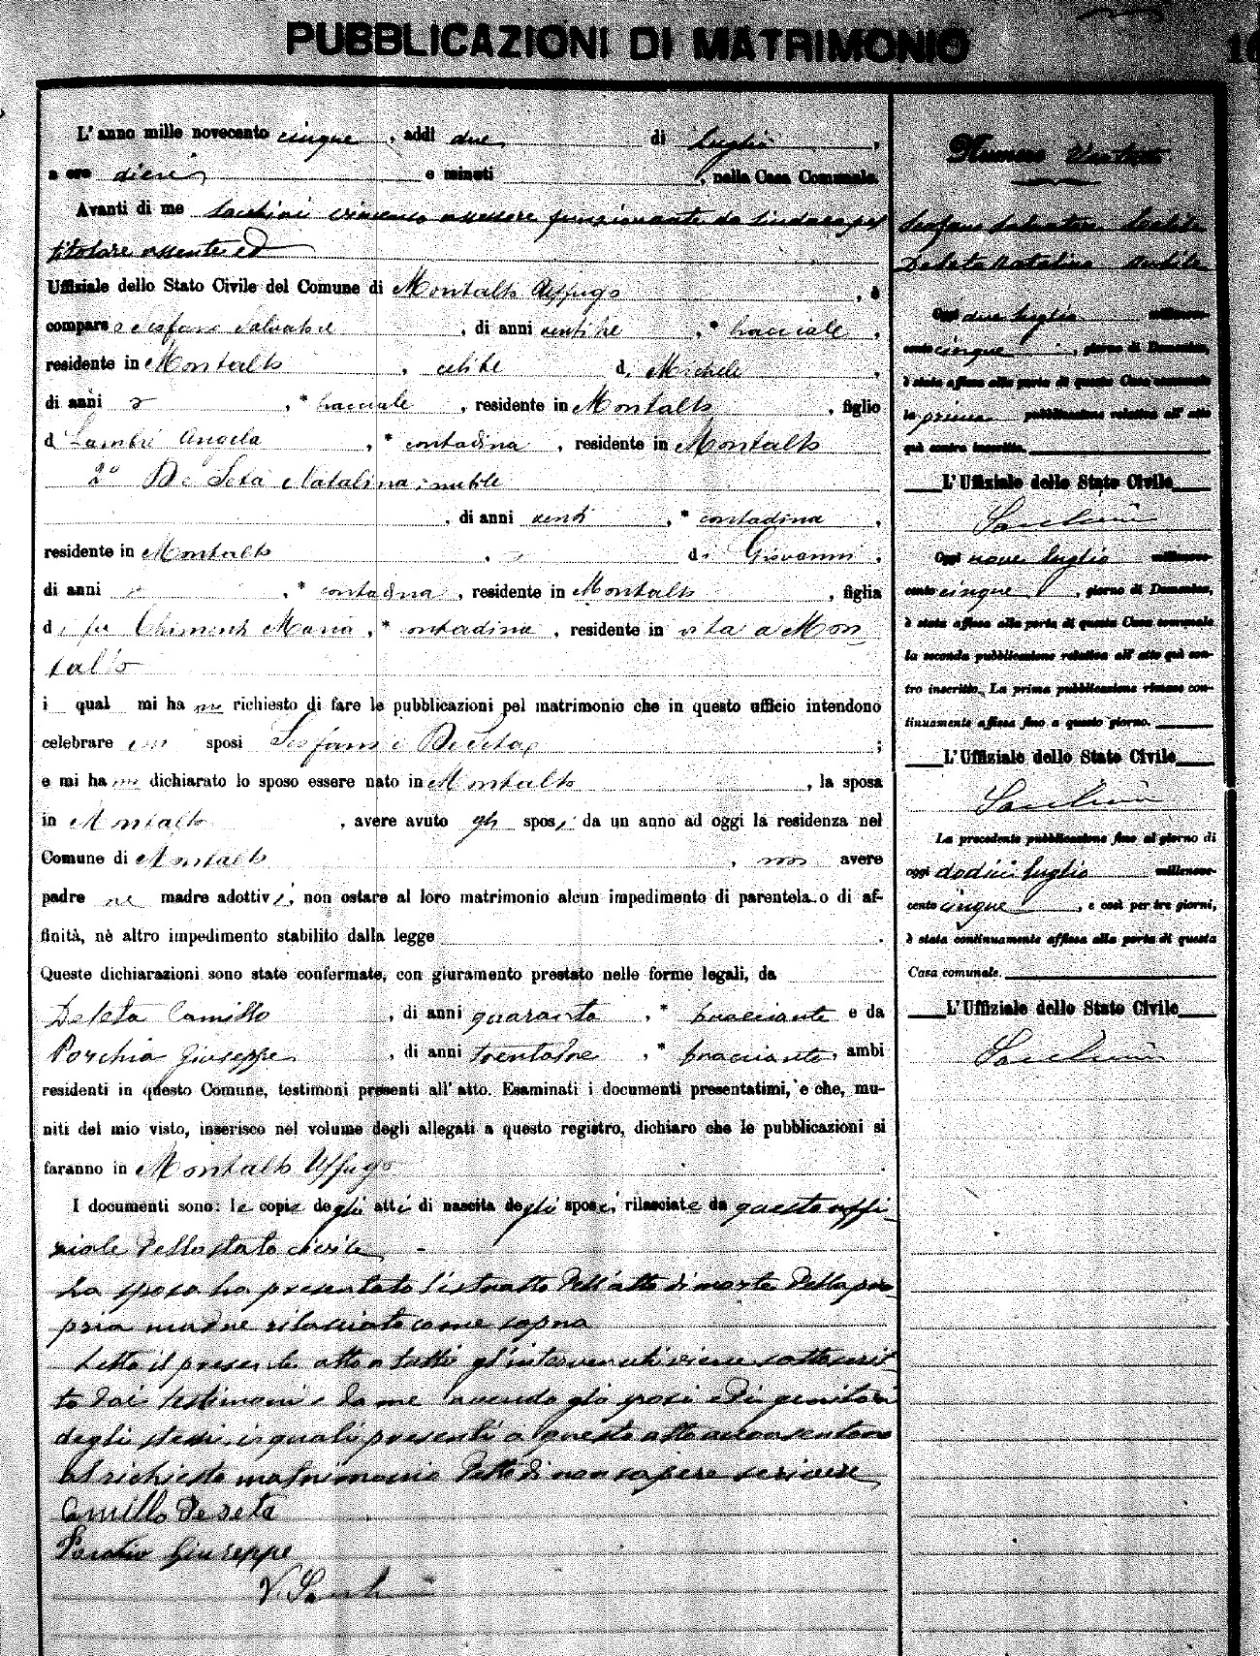 PUBBLICAZIONI DI MATRIMONIO
L' anno mille novecento cinque, addì due di Luglio,
a ore dieci e minuti , nella Casa Comunale.
Avanti di me Sacchini Vincenzo assessore funzionante da Sindaco pel
titolare assente ed
Uffiziale dello Stato Civile del Comune di Montalto Uffugo, è
compars , di anni , * bracciale,
residente in Montalto, celibe di Michele,
di anni , * bracciale, residente in Montalto, figlio
d Angela, * contadina, residente in Montalto
2° De Seta Natalina, nubile
, di anni venti, * contadina,
residente in Montalto, di Giovanni,
di anni , * contadina, residente in Montalto, figlia
di fu Chimenti Maria, * contadina, residente in vita a Mon
talto
i qual mi ha richiesto di fare le pubblicazioni pel matrimonio che in questo ufficio intendono
celebrare sposi De Seta;
e mi ha dichiarato lo sposo essere nato in Montalto, la sposa
in Montalto, avere avuto gli sposi da un anno ad oggi la residenza nel
Comune di Montalto, non avere
padre nè madre adottivi, non ostare al loro matrimonio alcun impedimento di parentela o di af-
finità, nè altro impedimento stabilito dalla legge.
Queste dichiarazioni sono state confermate, con giuramento prestato nelle forme legali, da
De Seta Camillo, di anni quaranta, * bracciante e da
Porchia Giuseppe, di anni , * bracciante, ambi
residenti in questo Comune, testimoni presenti all' atto. Esaminati i documenti presentatimi, e che, mu-
niti del mio visto, inserisco nel volume degli allegati a questo registro, dichiaro che le pubblicazioni si
faranno in Montalto Uffugo.
I documenti sono: le copie degli atti di nascita degli sposi, rilasciate da questo uffi
ziale dello stato civile
La sposa ha presentato l'estratto dell'atto di morte della pro
pria madre rilasciato come sopra
Letto il presente atto a tutti gl'intervenuti viene sottoscrit
to dai testimoni e da me avendo gli sposi e di genitori
degli stessi, i quali presenti a questo atto acconsentono
al richiesto matrimonio detto di non sapere scrivere
Camillo De Seta
Porchia Giuseppe
V. Sacchini
Numero
Salvatore Celibe
De Seta Natalina nubile
Oggi due luglio millenove-
cento cinque, giorno di Domenica,
è stata affissa alla porta di questa Casa comunale
la prima pubblicazione relativa all' atto
quì contro inscritto.
L' Uffiziale dello Stato Civile
Sacchini
Oggi nove luglio millenove-
cento cinque, giorno di Domenica,
è stata affissa alla porta di questa Casa comunale
la seconda pubblicazione relativa all' atto quì con-
tro inscritto. La prima pubblicazione rimase con-
tinuamente affissa fino a questo giorno.
L' Uffiziale dello Stato Civile
Sacchini
La precedente pubblicazione fino al giorno di
oggi dodici luglio millenove-
cento cinque, e così per tre giorni,
è stata continuamente affissa alla porta di questa
Casa comunale.
L' Uffiziale dello Stato Civile
Sacchini